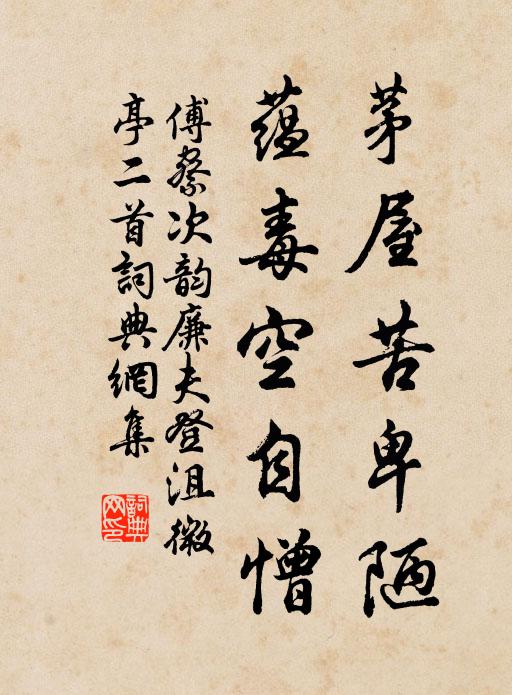 茅屋苦卑陋
蕴毒空自憎
傅察次韵廉夫登沮徽
亭二首詞典網集
詞典网印